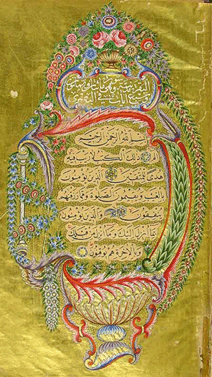 بسم الله الرحمن الرحيم
الم ذلك الكتاب لا ريب فيه
هدى للمتقين الذين يؤمنون
بالغيب ويقيمون الصلوة ومما رزقناهم
ينفقون والذين يؤمنون
بما انزل اليك وما انزل من قبلك
وبالاخرة هم يوقنون